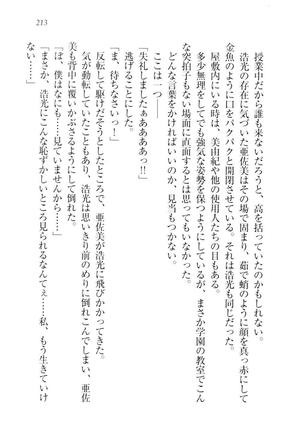 213
授業中だから誰も来ないだろうと、高を括っていたのかもしれない。
浩光の存在に気づいた亜佐美はその場で固まり、茹で蛸のように顔を真っ赤にして
金魚のように口をパクパクと開閉させている。それは浩光も同じだった。
屋敷内にいる時は、美由紀や他の使用人たちの目もある。
多少無理をしてでも強気な姿勢を保つようにしているが、まさか学園の教室でこん
な突拍子もない場面に直面するとは思ってもいなかった。
どんな言葉をかければいいのか、見当もつかない。
ここは一つ――
「失礼しましたぁああああ!!」
逃げることにした。
「ま、待ちなさいっ!」
反転して駆けだそうとしたところで、亜佐美が浩光に飛びかかってきた。
気が動転していたこともあり、浩光は思いきり前のめりに倒れこんでしまい、亜佐
美も背中に覆いかぶさるようにして倒れた。
「ぼ、僕はなにも……見ていませんから――」
「まさか、浩光にこんな恥ずかしいところ見られるなんてぇ……私、もう生きていけ
ない……」